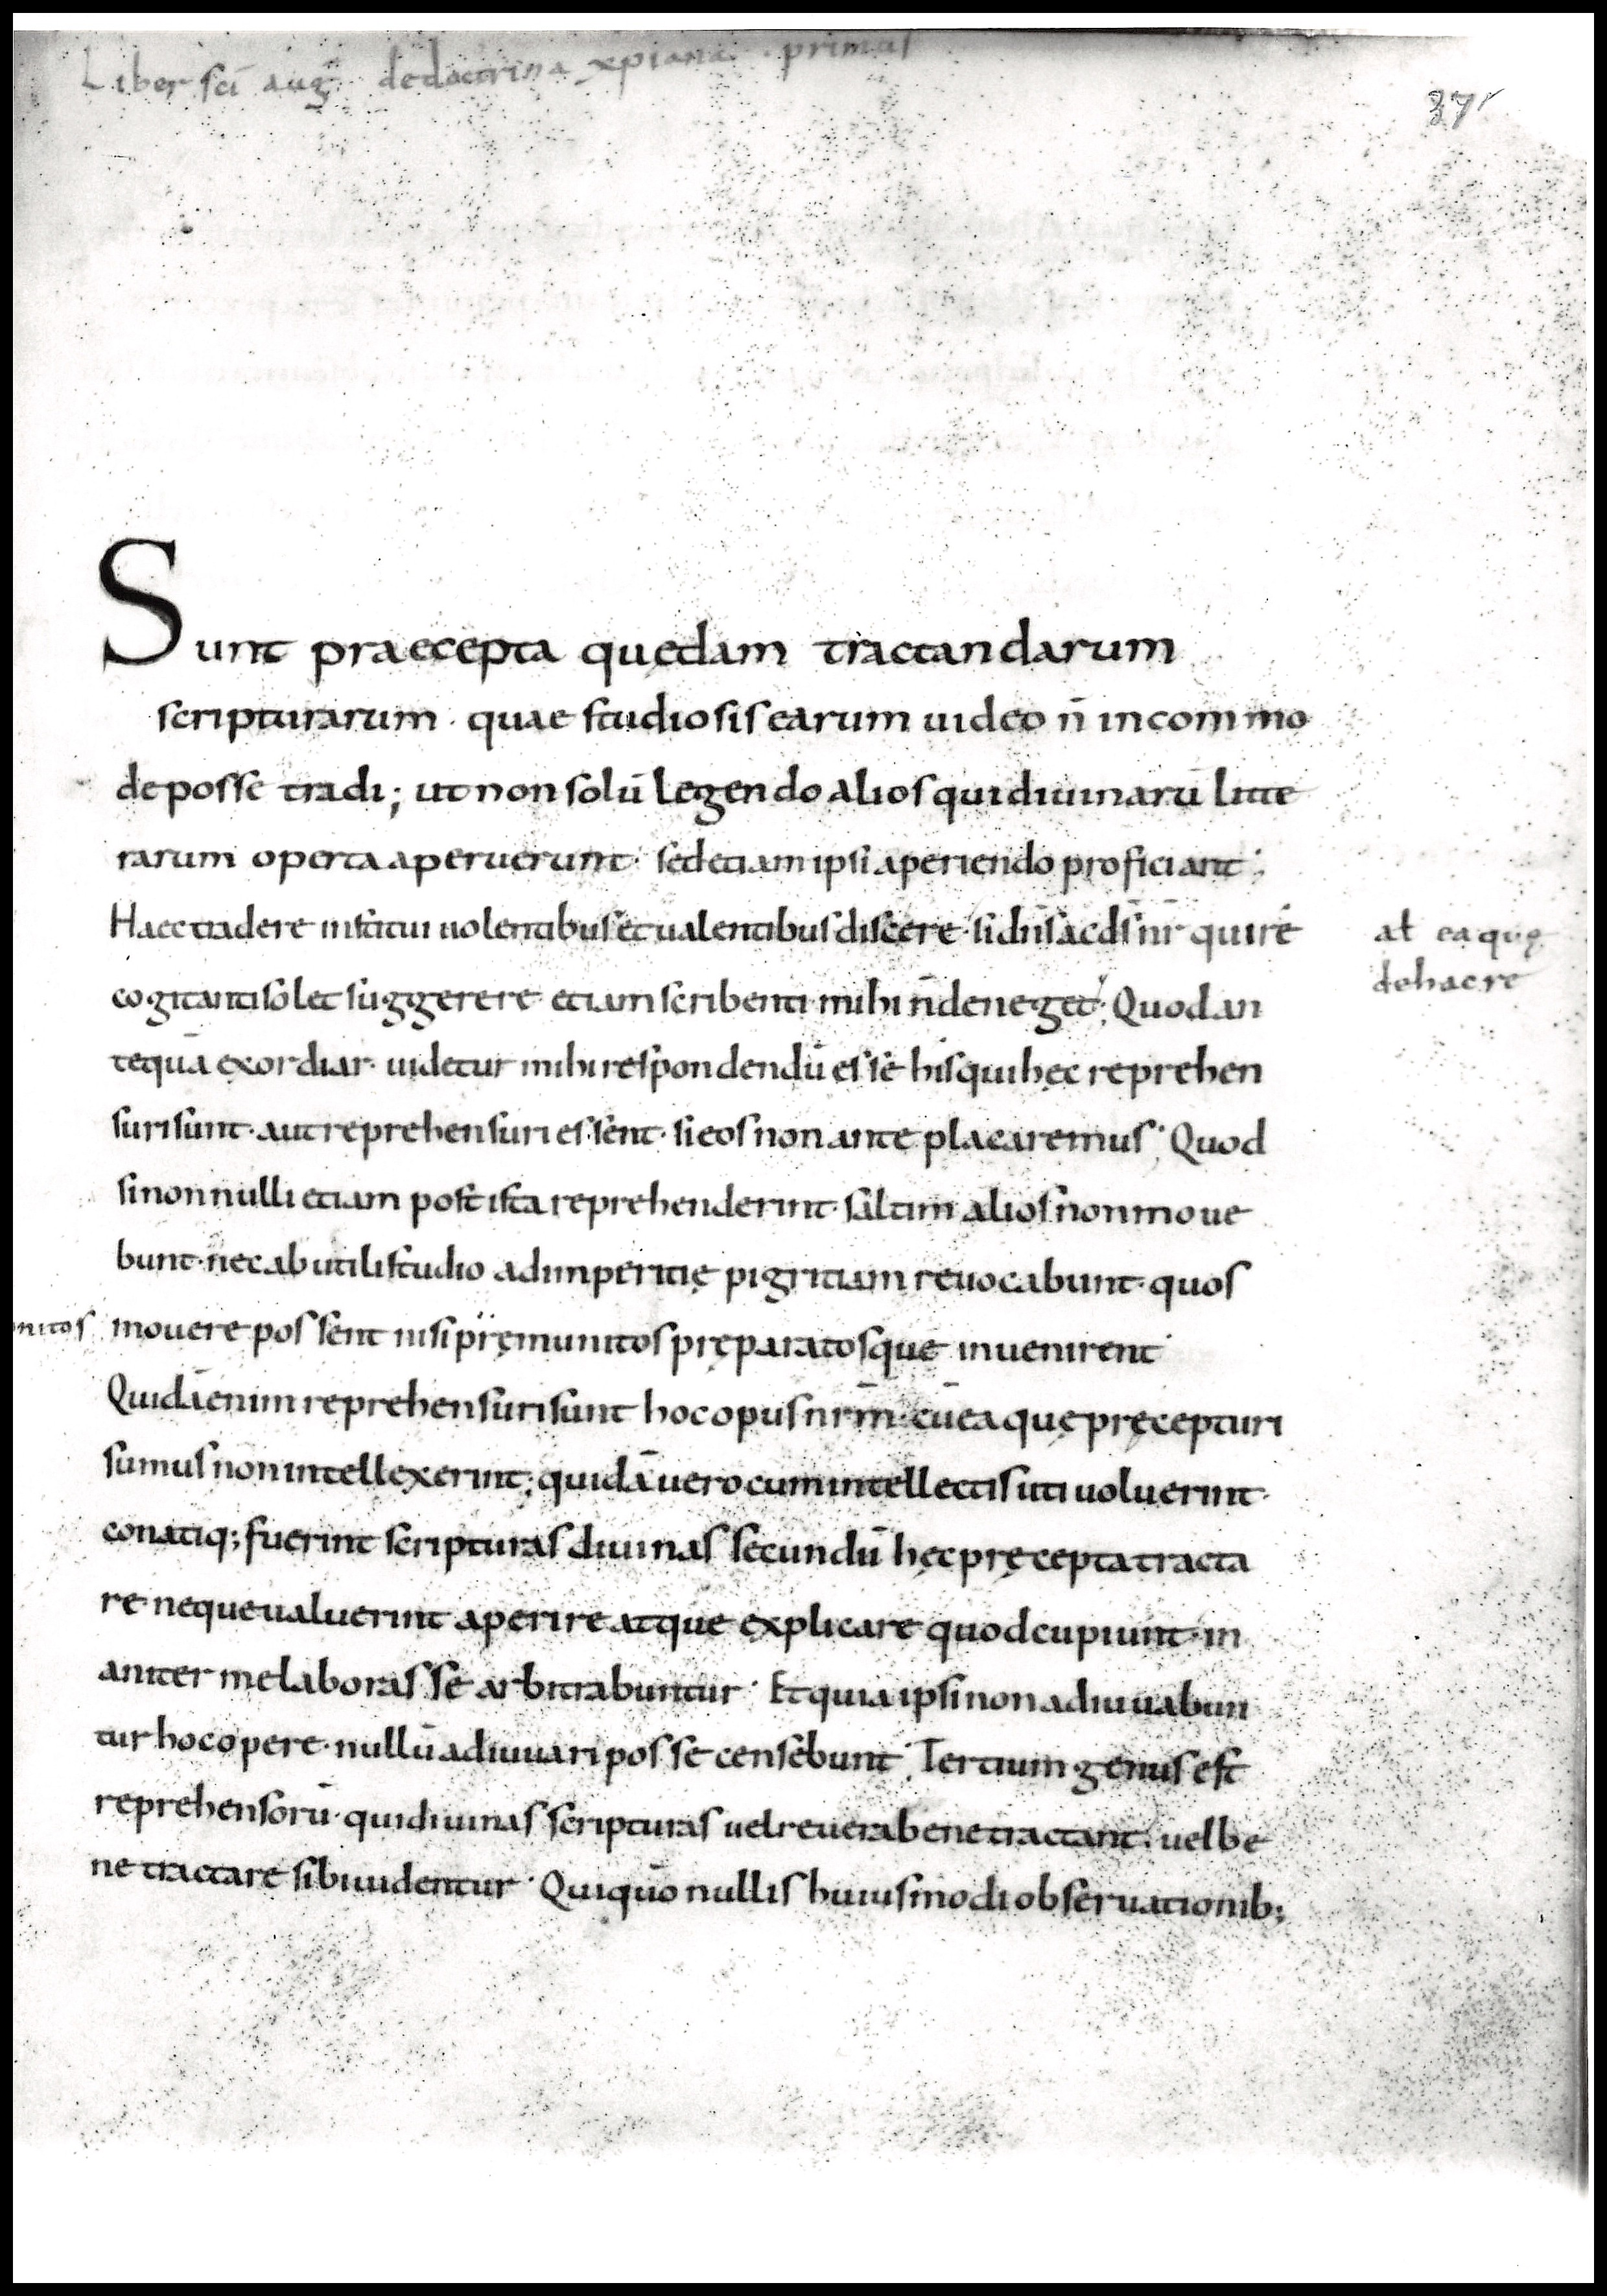 Liber sc̄i aug de doctrina xp̄iana · primus
37r
Sunt praecepta quędam tractandarum
scripturarum · quae studiosis earum uideo n̄ incommo
de posse tradi; ut non solū legendo alios qui diuinarū litte
rarum operta aperuerunt · sed etiam ipsi aperiendo proficiant;
Haec tradere institui uolentibus et ualentibus discere · si dn̄s ac ds̄ nr̄ qui re
al ea quę
de hac re
cogitanti solet suggerere etiam scribenti mihi n̄ deneget; Quod an
tequā exordiar · uidetur mihi respondendū esse his qui hęc reprehen
suri sunt · aut reprehensuri essent · si eos non ante placaremus; Quod
si non nulli etiam post ista reprehenderint · saltim alios non moue
bunt · nec ab utili studio ad imperitię pigritiam reuocabunt · quos
nitos
mouere possent nisi pręmunitos pręparatosque inuenirent
Quidā enim reprehensuri sunt hoc opus nr̄m · cū ea quę pręcepturi
sumus non intellexerint; quidā uero cum intellectis uti uoluerint ·
conatiq; fuerint scripturas diuinas secundū hęc pręcepta tracta
re neque ualuerint aperire atque explicare quod cupiunt · in
aniter me laborasse arbitrabuntur · Et quia ipsi non adiuuabun
tur hoc opere · nullū adiuuari posse censebunt; Tertium genus est
reprehensorū · qui diuinas scripturas uel reuera bene tractant · uel be
ne tractare sibi uidentur · Qui quō nullis huiusmodi obseruationib;